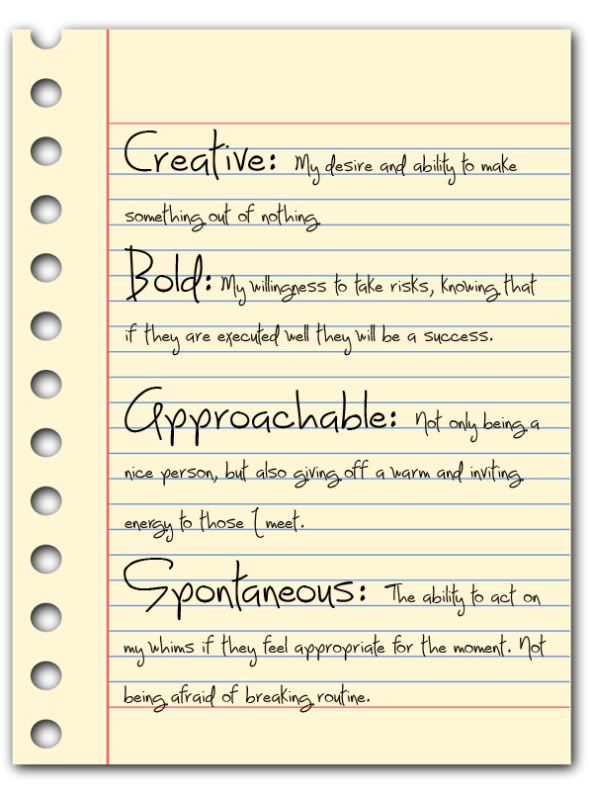 Creative: My desire and ability to make
something out of nothing
Bold: My willingness to take risks, knowing that
if they are executed well they will be a success.
Approachable: Not only being a
nice person, but also giving off a warm and inviting
energy to those I meet.
Spontaneous: The ability to act on
my whims if they feel appropriate for the moment. Not
being afraid of breaking routine.